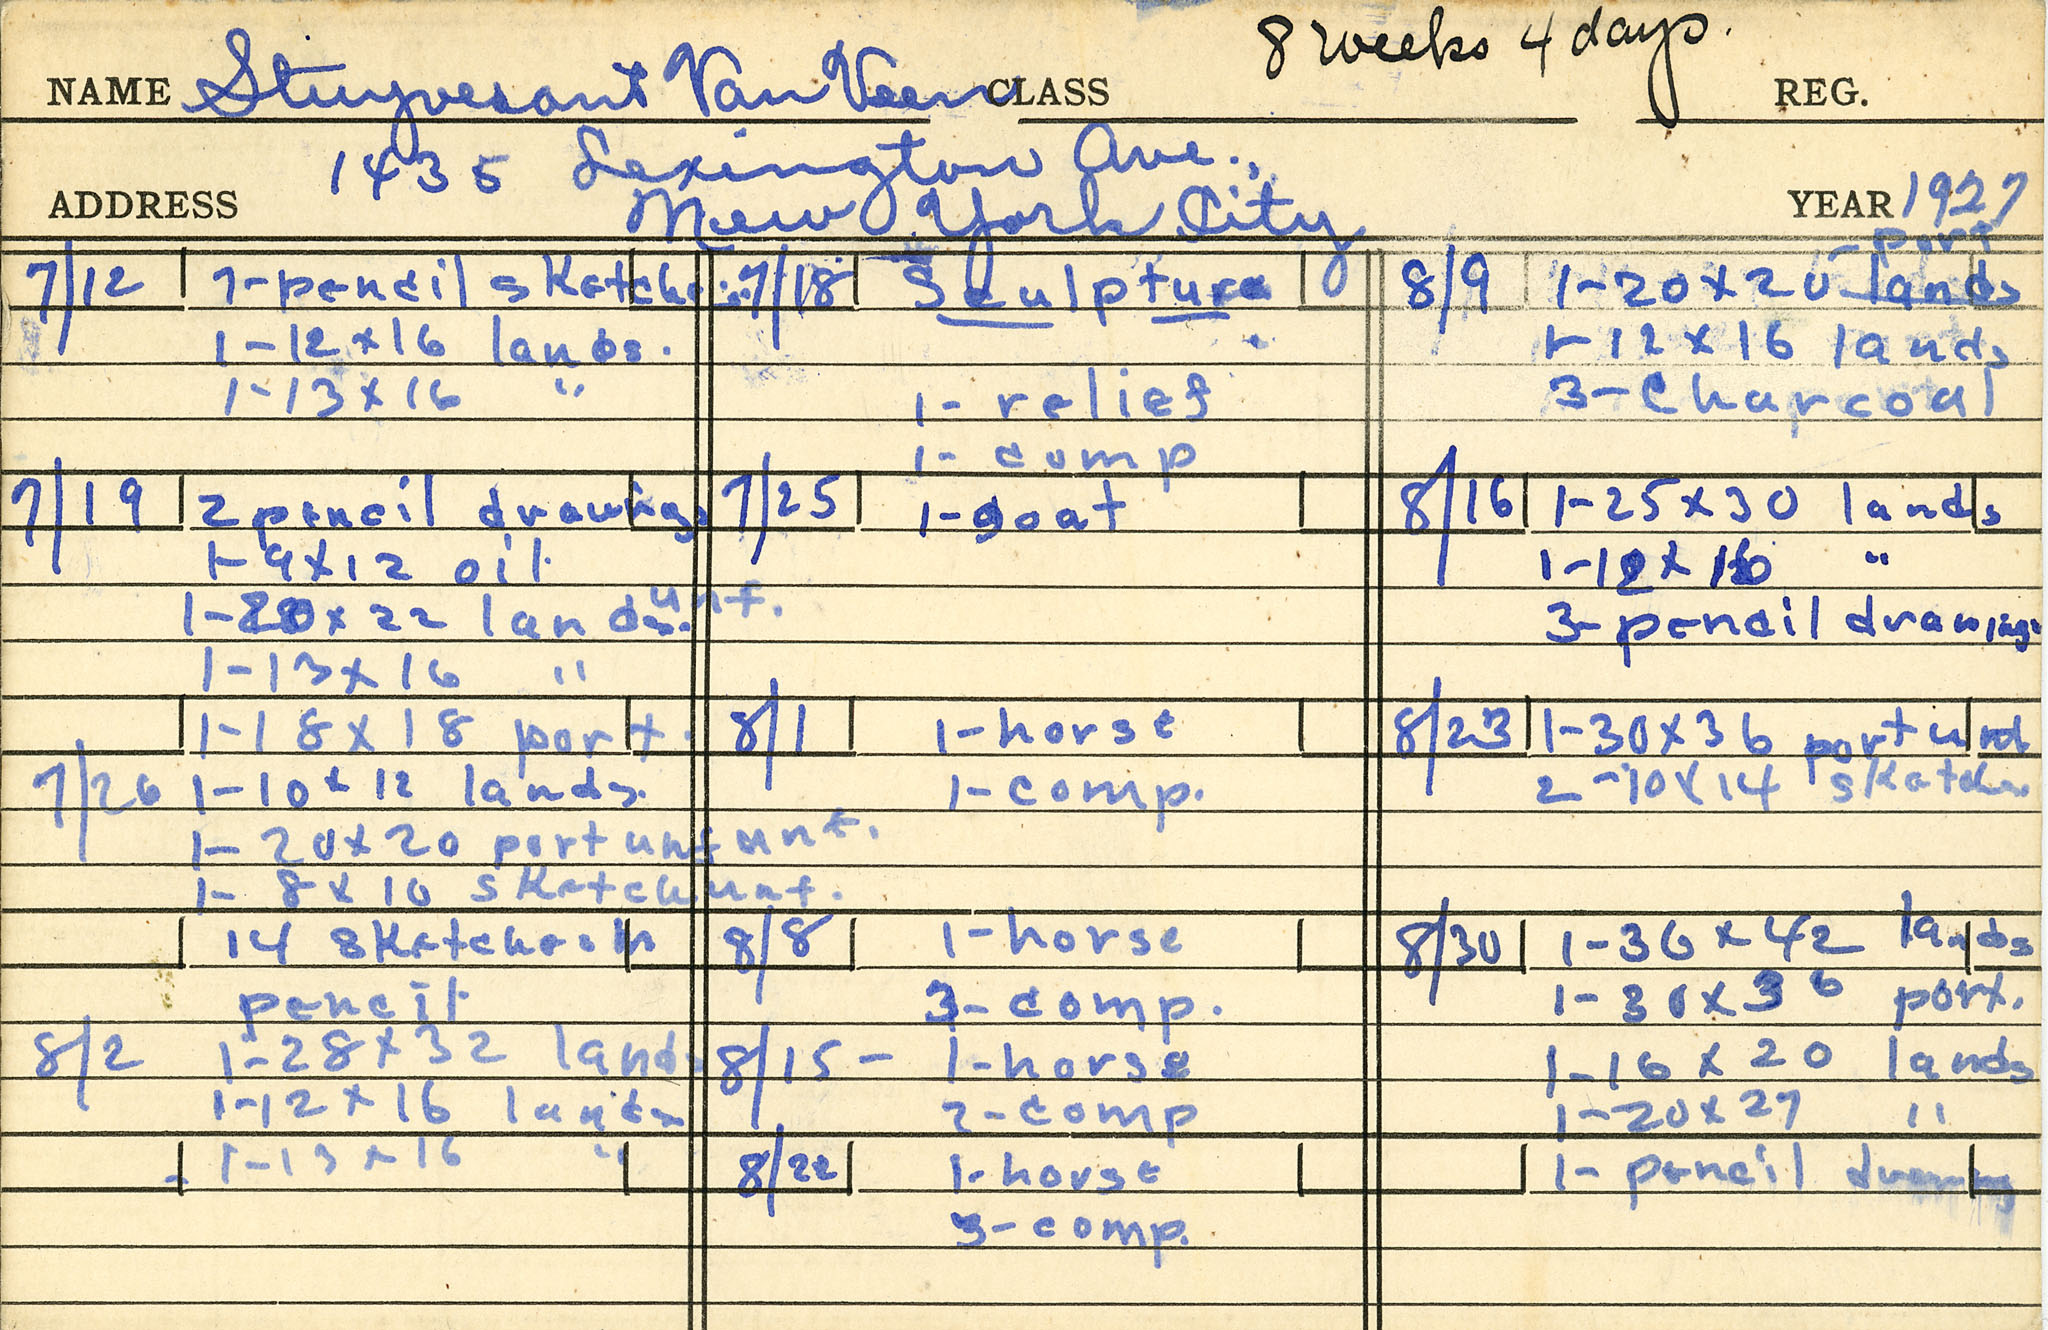 8 weeks 4 days.
NAME Stuyvesant Van Veen CLASS REG.
1435 Lexington Ave.,
ADDRESS New York City YEAR 1927
7/12 7-pencil sketches
1-12x16 lands.
1-13x16 "
7/19 2 pencil drawings
1-9x12 oil
1-20x22 lands. unf.
1-13x16 "
1-18x18 port.
7/26 1-10x12 lands.
1-20x20 port unf unf.
1-8x10 sketch unf.
14 sketches in
pencil
8/2 1-28x32 lands
1-12x16 lands
1-13x16 "
7/18 Sculpture
1-relief
1-comp
7/25 1-goat
8/1 1-horse
1-comp.
8/8 1-horse
3-comp.
8/15 - 1-horse
2-comp
8/22 1-horse
3-comp.
port
8/9 1-20x20 lands
1-12x16 lands
3-Charcoal
8/16 1-25x30 lands
1-12x16 "
3-pencil drawings
8/23 1-30x36 port
2-10x14 sketches
8/30 1-36x42 lands
1-30x36 port.
1-16x20 lands
1-20x27 "
1-pencil drawing